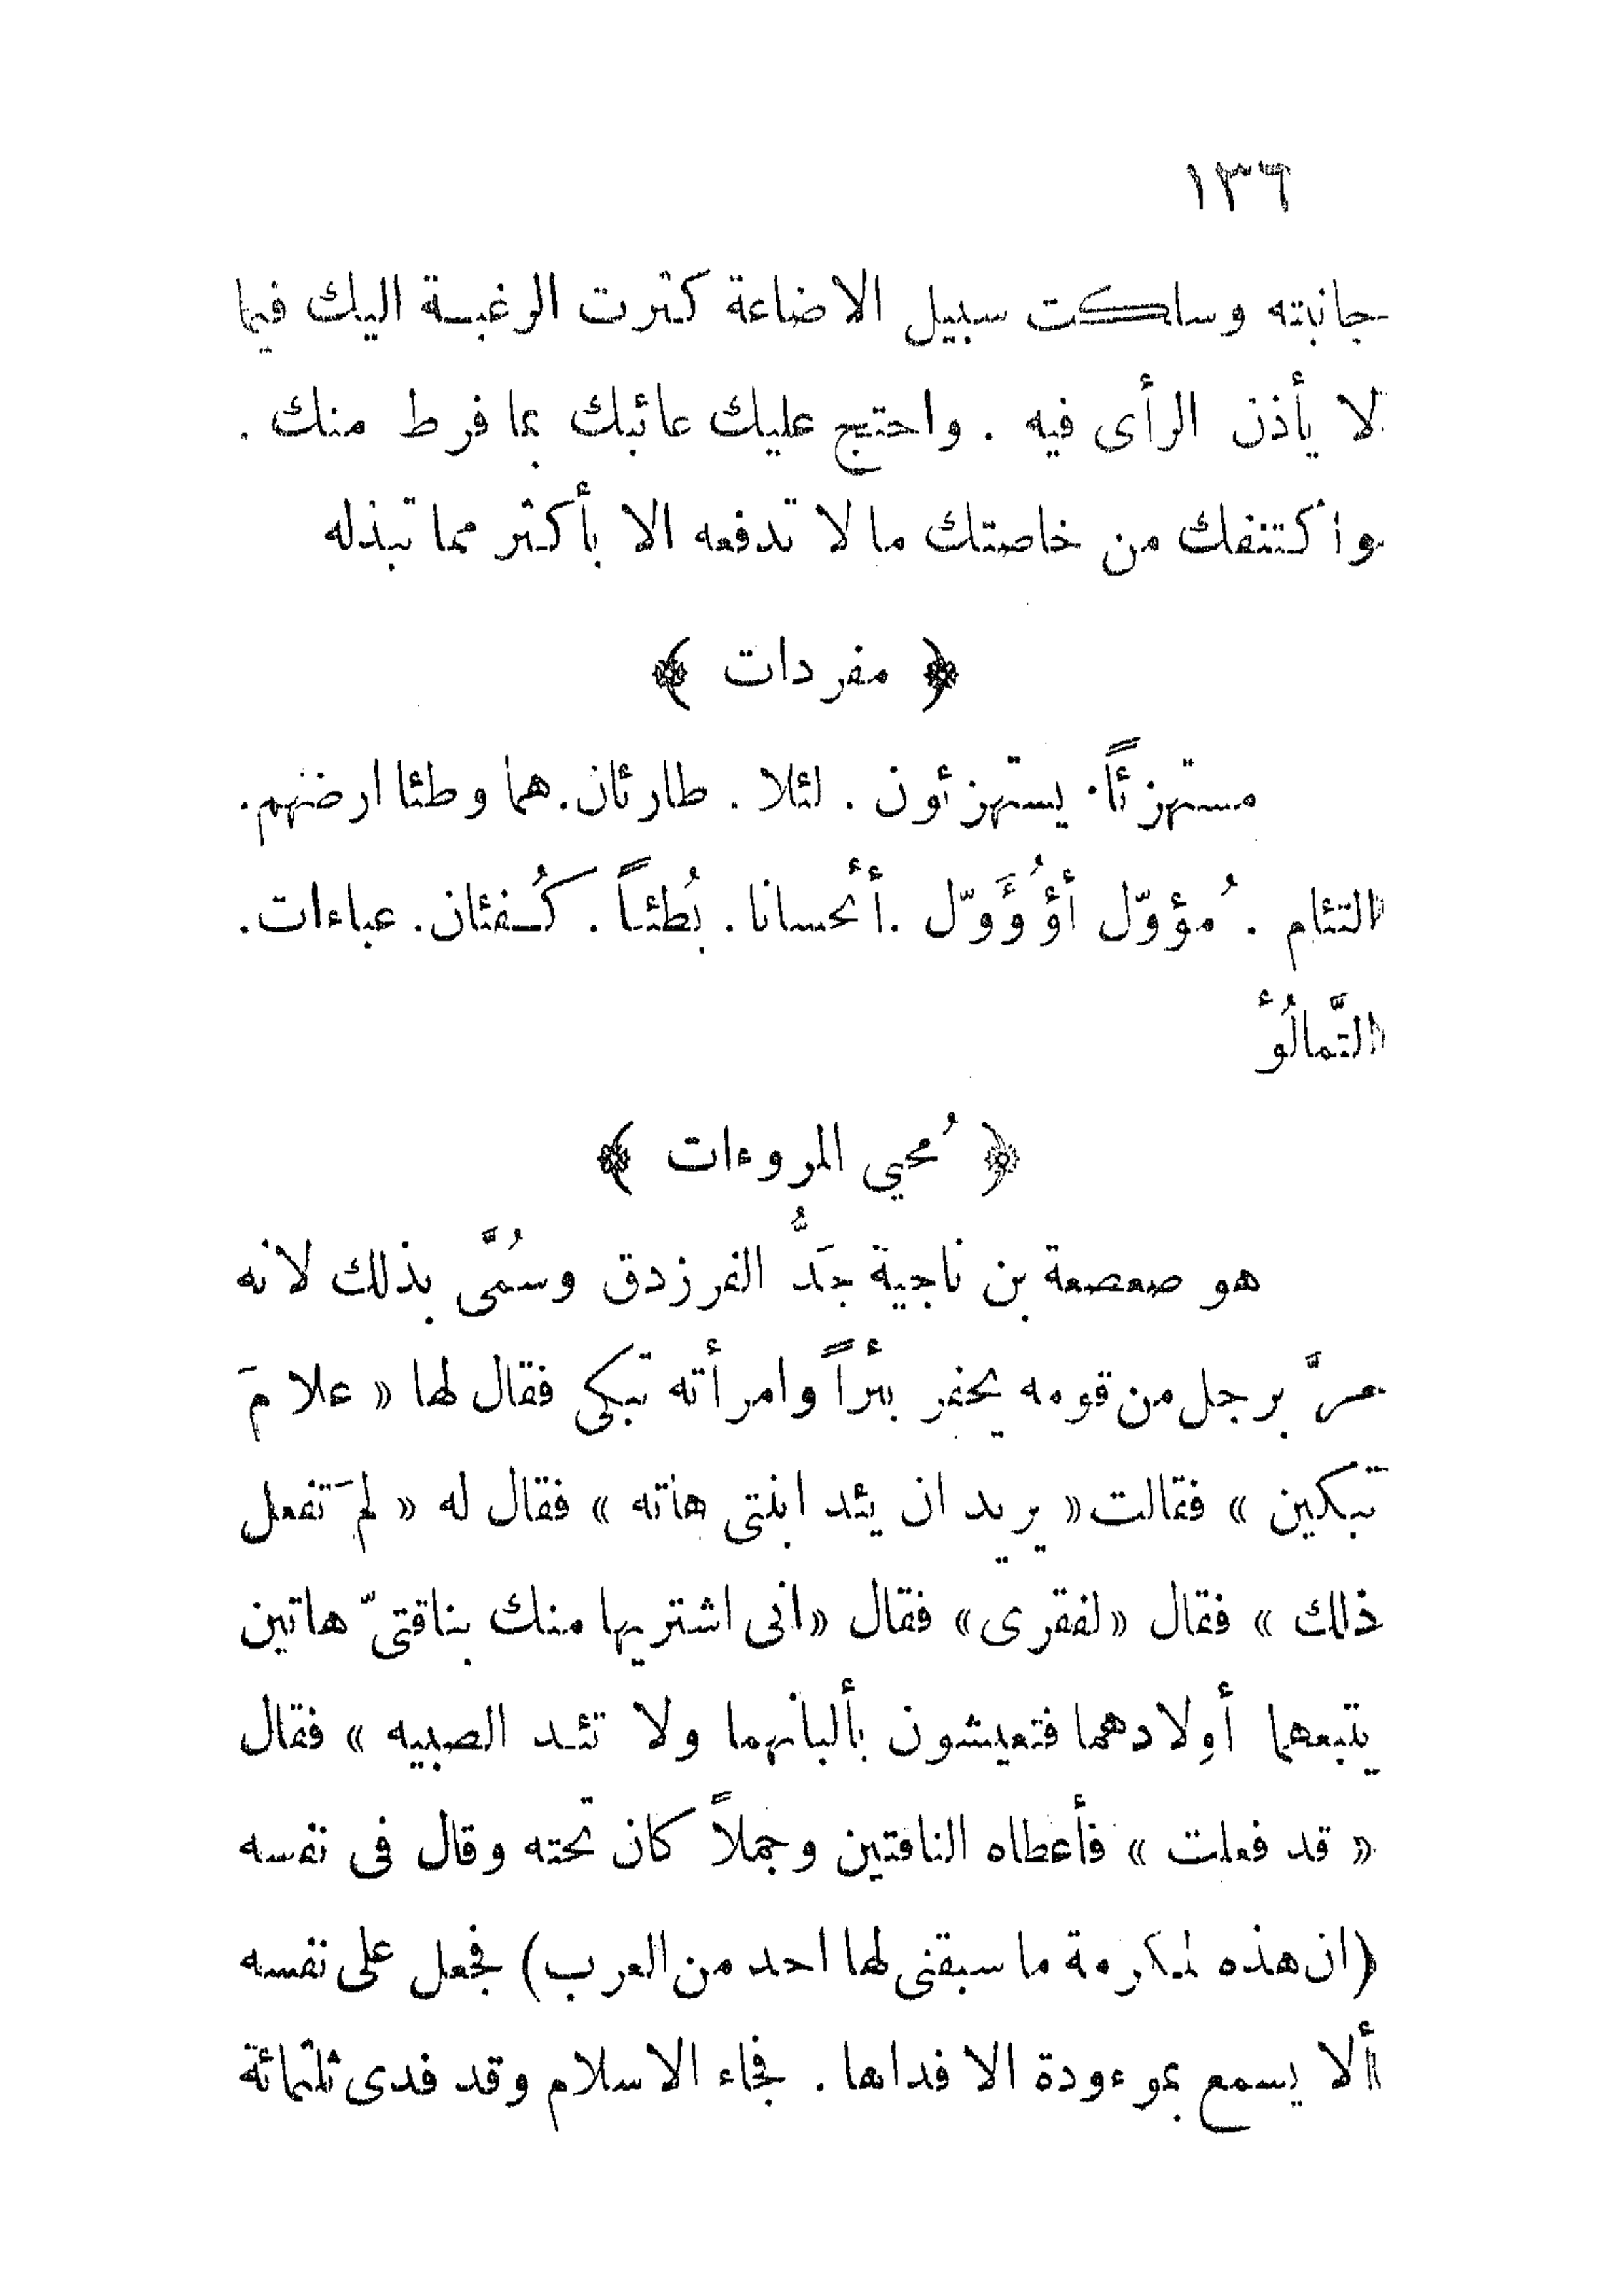 ١٣٦
جانبته وسلكت سبيل الاضاعة كثرت الرغبة اليك فيما
لا يأذن الرأى فيه . واحتج عليك عائبك بما فرط منك .
واكتنفك من خاصتك ما لا تدفعه الا بأكثر مما تبذله
﴿ مفردات ﴾
مستهزئاً . يستهزئون . لئلا . طارئان . هما وطئا ارضهم .
التئام . مُؤوّل أؤُوَّل . أَحسانا . بُطئاً . كُفئان . عباءات .
التَّمالُؤ
﴿ مُحيي المروءات ﴾
هو صعصعة بن ناجية جَدُّ الفرزدق وسُمّى بذلك لانه
مرَّ برجل من قومه يحفر بئراً وامرأته تبكى فقال لها « علامَ
تبكين » فقالت « يريد ان يئد ابنتى هاته » فقال له « لمَ تفعل
ذلك » فقال « لفقرى » فقال « انى اشتريها منك بناقتىّ هاتين
يتبعهما أولادهما فتعيشون بألبانهما ولا تئد الصبيه » فقال
« قد فعلت » فأعطاه الناقتين وجملاً كان تحته وقال فى نفسه
(ان هذه لمكرمة ما سبقنى لها احد من العرب) فجعل على نفسه
ألا يسمع بموءودة الا فداها . فجاء الاسلام وقد فدى ثلثمائة